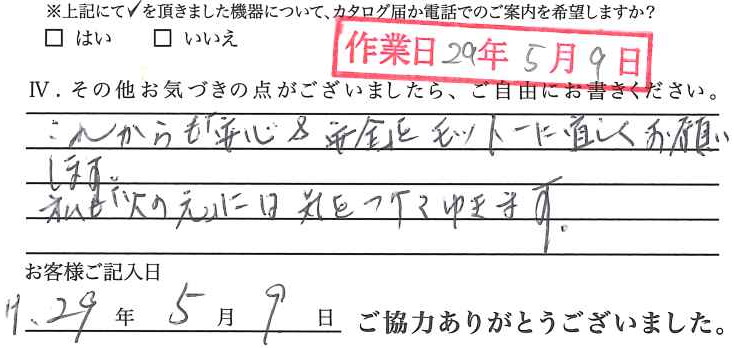 ※上記にて✓を頂きました機器について、カタログ届か電話でのご案内を希望しますか?
□ はい □ いいえ
作業日29年5月9日
Ⅳ. その他お気づきの点がございましたら、ご自由にお書きください。
これからも「安心&安全」をモットーに宜しくお願い
します。
私も「火の元」には気をつけてゆきます。
お客様ご記入日
H.29年5月9日 ご協力ありがとうございました。